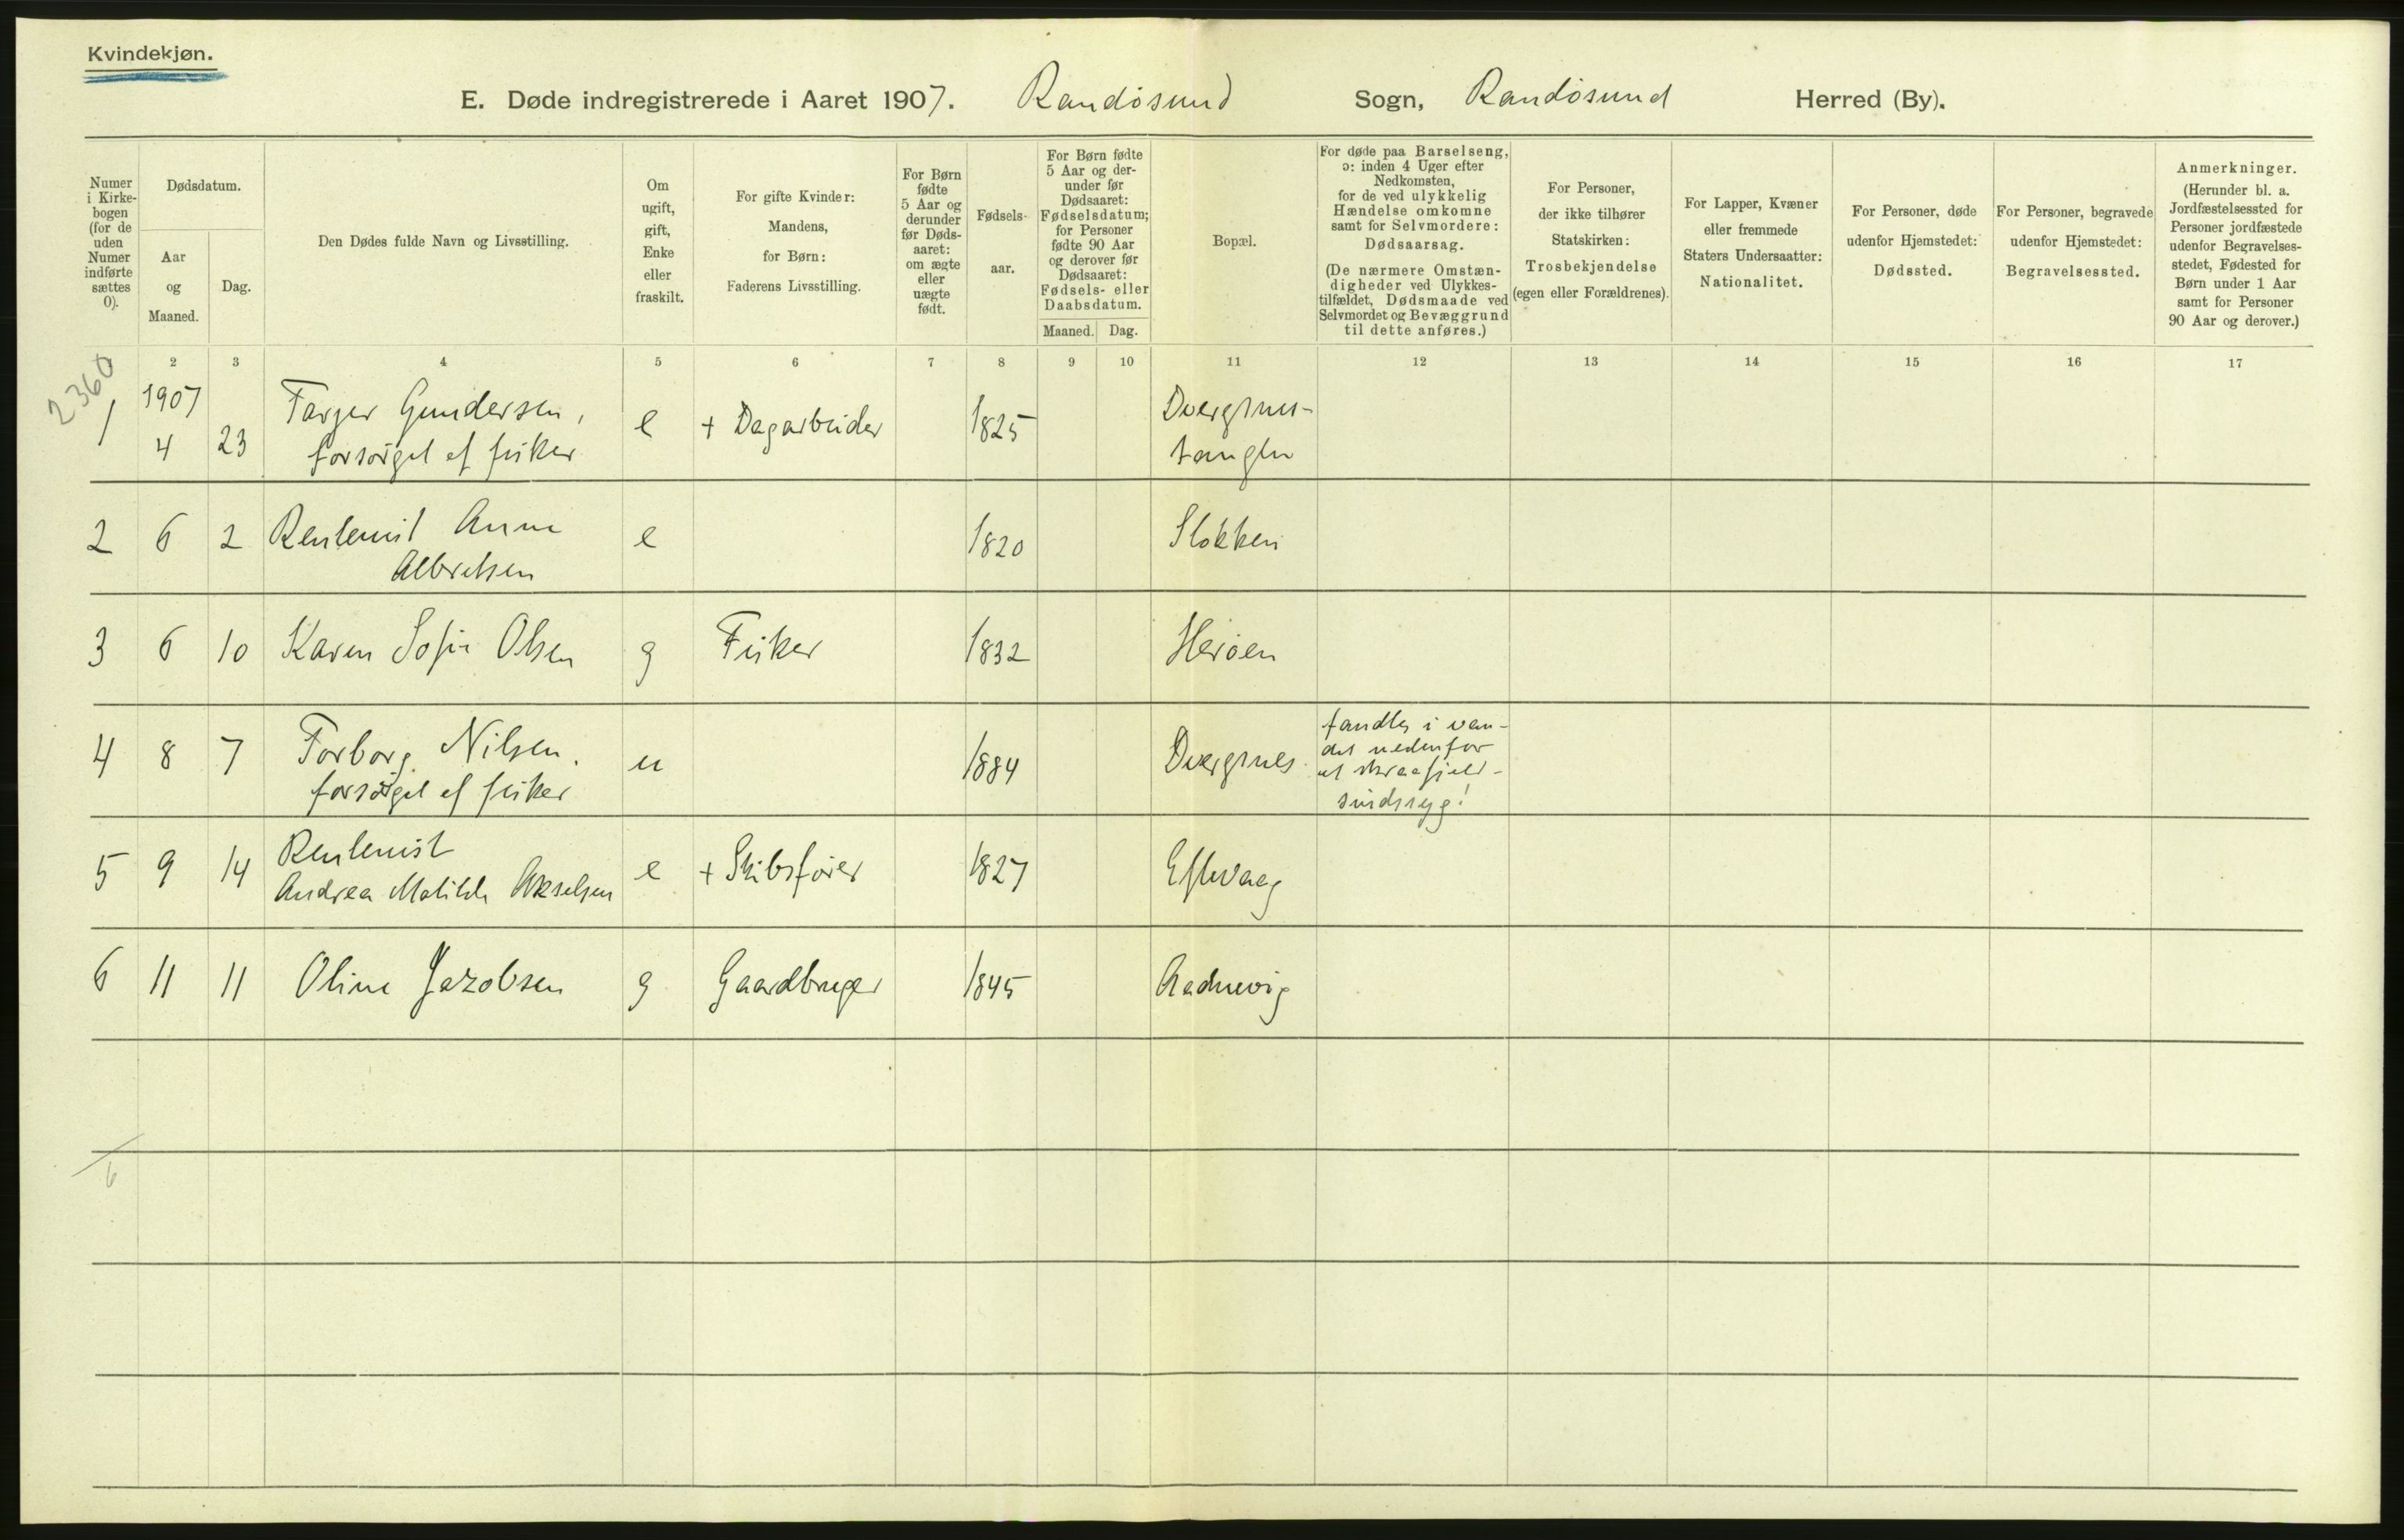 Kvindekjøn.
E. Døde indregistrerede i Aaret 1907. Randøsund Sogn, Randøsund Herred (By).
Numer i Kirke-bogen (for de uden Numer indførte sættes 0).
Dødsdatum.
Aar og Maaned.
Dag.
Den Dødes fulde Navn og Livsstilling.
Om ugift, gift, Enke eller fraskilt.
For gifte Kvinder: Mandens, for Børn: Faderens Livsstilling.
For Børn fødte 5 Aar og derunder før Døds-aaret: om ægte eller uægte født.
Fødsels-aar.
For Børn fødte 5 Aar og der-under før Dødsaaret: Fødselsdatum; for Personer fødte 90 Aar og derover før Dødsaaret: Fødsels- eller Daabsdatum.
Maaned. Dag.
Bopæl.
For døde paa Barselseng, ɔ: inden 4 Uger efter Nedkomsten, for de ved ulykkelig Hændelse omkomne samt for Selvmordere: Dødsaarsag.
(De nærmere Omstæn-digheder ved Ulykkes-tilfældet, Dødsmaade ved Selvmordet og Bevæggrund til dette anføres.)
For Personer, der ikke tilhører Statskirken: Trosbekjendelse (egen eller Forældrenes).
For Lapper, Kvæner eller fremmede Staters Undersaatter: Nationalitet.
For Personer, døde udenfor Hjemstedet: Dødssted.
For Personer, begravede udenfor Hjemstedet: Begravelsessted.
Anmerkninger. (Herunder bl. a. Jordfæstelsessted for Personer jordfæstede udenfor Begravelses-stedet, Fødested for Børn under 1 Aar samt for Personer 90 Aar og derover.)
2 3 4 5 6 7 8 9 10 11 12 13 14 15 16 17
2360
1 1907 4 23 Tarjer Gundersen, forsørget af fisker e + Dagarbeider 1825 Dvergsnes-tangen
2 6 2 Rentenist Anne Albretsen e 1820 Stokken
3 6 10 Karen Sofie Olsen g Fisker 1832 Herøen
4 8 7 Torborg Nilsen, forsørget af fisker u 1884 Dvergsnes fandtes i van-det nedenfor et skraafjeld - sindssyg!
5 9 14 Rentenist Andrea Matilde Akselsen e + Skibsfører 1827 Eftevaag
6 11 11 Oline Jakobsen g Gaardbruger 1845 Aadnevig
6